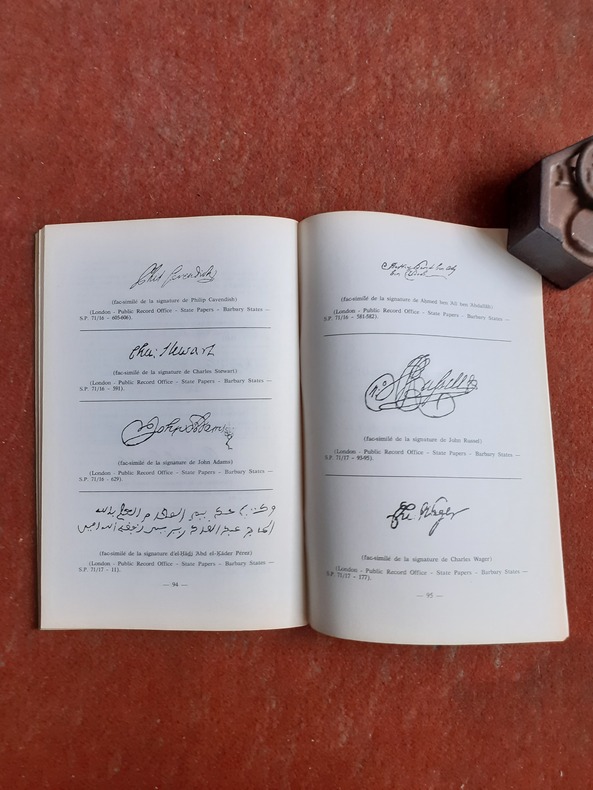 Phil Cavendish
(fac-similé de la signature de Philip Cavendish)
(London - Public Record Office - State Papers - Barbary States —
S.P. 71/16 - 605-606).
Cha: Stewart
(fac-similé de la signature de Charles Stewart)
(London - Public Record Office - State Papers - Barbary States —
S.P. 71/16 - 591).
John Adams
(fac-similé de la signature de John Adams)
(London - Public Record Office - State Papers - Barbary States —
S.P. 71/16 - 629).
(fac-similé de la signature d'el-Ḥâdj ʿAbd el-Ḳâder Pérez)
(London - Public Record Office - State Papers - Barbary States —
S.P. 71/17 - 11).
— 94 —
(fac-similé de la signature de Ahmed ben ʿAli ben ʿAbdallâh)
(London - Public Record Office - State Papers - Barbary States —
S.P. 71/16 - 581-582).
Russell
(fac-similé de la signature de John Russel)
(London - Public Record Office - State Papers - Barbary States —
S.P. 71/17 - 93-95).
Cha. Wager
(fac-similé de la signature de Charles Wager)
(London - Public Record Office - State Papers - Barbary States —
S.P. 71/17 - 177).
— 95 —